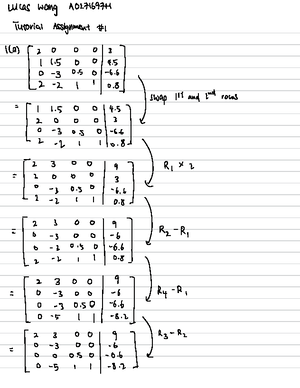 Lucas Wong A0217697H
Tutorial Assignment #1
1(a) [ 2 0 0 0 | 3
1 1.5 0 0 | 4.5
0 -3 0.5 0 | -6.6
2 -2 1 1 | 0.8 ]
swap 1st and 2nd rows
= [ 1 1.5 0 0 | 4.5
2 0 0 0 | 3
0 -3 0.5 0 | -6.6
2 -2 1 1 | 0.8 ]
R1 × 2
= [ 2 3 0 0 | 9
2 0 0 0 | 3
0 -3 0.5 0 | -6.6
2 -2 1 1 | 0.8 ]
R2 - R1
= [ 2 3 0 0 | 9
0 -3 0 0 | -6
0 -3 0.5 0 | -6.6
2 -2 1 1 | 0.8 ]
R4 - R1
= [ 2 3 0 0 | 9
0 -3 0 0 | -6
0 -3 0.5 0 | -6.6
0 -5 1 1 | -8.2 ]
R3 - R2
= [ 2 3 0 0 | 9
0 -3 0 0 | -6
0 0 0.5 0 | -0.6
0 -5 1 1 | -8.2 ]